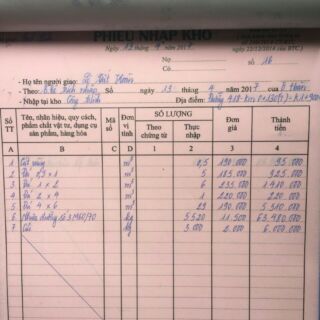 PHIẾU NHẬP KHO
Ngày 13 tháng 4 năm 2017
22/12/2014 của BTC.)
Nợ
Số 16
Có
- Họ tên người giao: Lê
- Theo: Số ngày 13 tháng 4 năm 2017 của
- Nhập tại kho Công trình Địa điểm: Đường 418
SỐ TT Tên, nhãn hiệu, quy cách, phẩm chất vật tư, dụng cụ sản phẩm, hàng hóa Mã số Đơn vị tính SỐ LƯỢNG Theo chứng từ Thực nhập Đơn giá Thành tiền
A B C D 1 2 3 4
1 Cát vàng m³ 0,5 190.000 95.000
2 Đá 0,5 x 1 m³ 5 185.000 925.000
3 Đá 1 x 2 m³ 6 235.000 1.410.000
4 Đá 2 x 4 m³ 1 220.000 220.000
5 Đá 4 x 6 m³ 29 190.000 5.510.000
6 Nhựa đường số 3 M60/70 kg 5.520 11.500 63.480.000
7 Củi kg 3.000 2.000 6.000.000